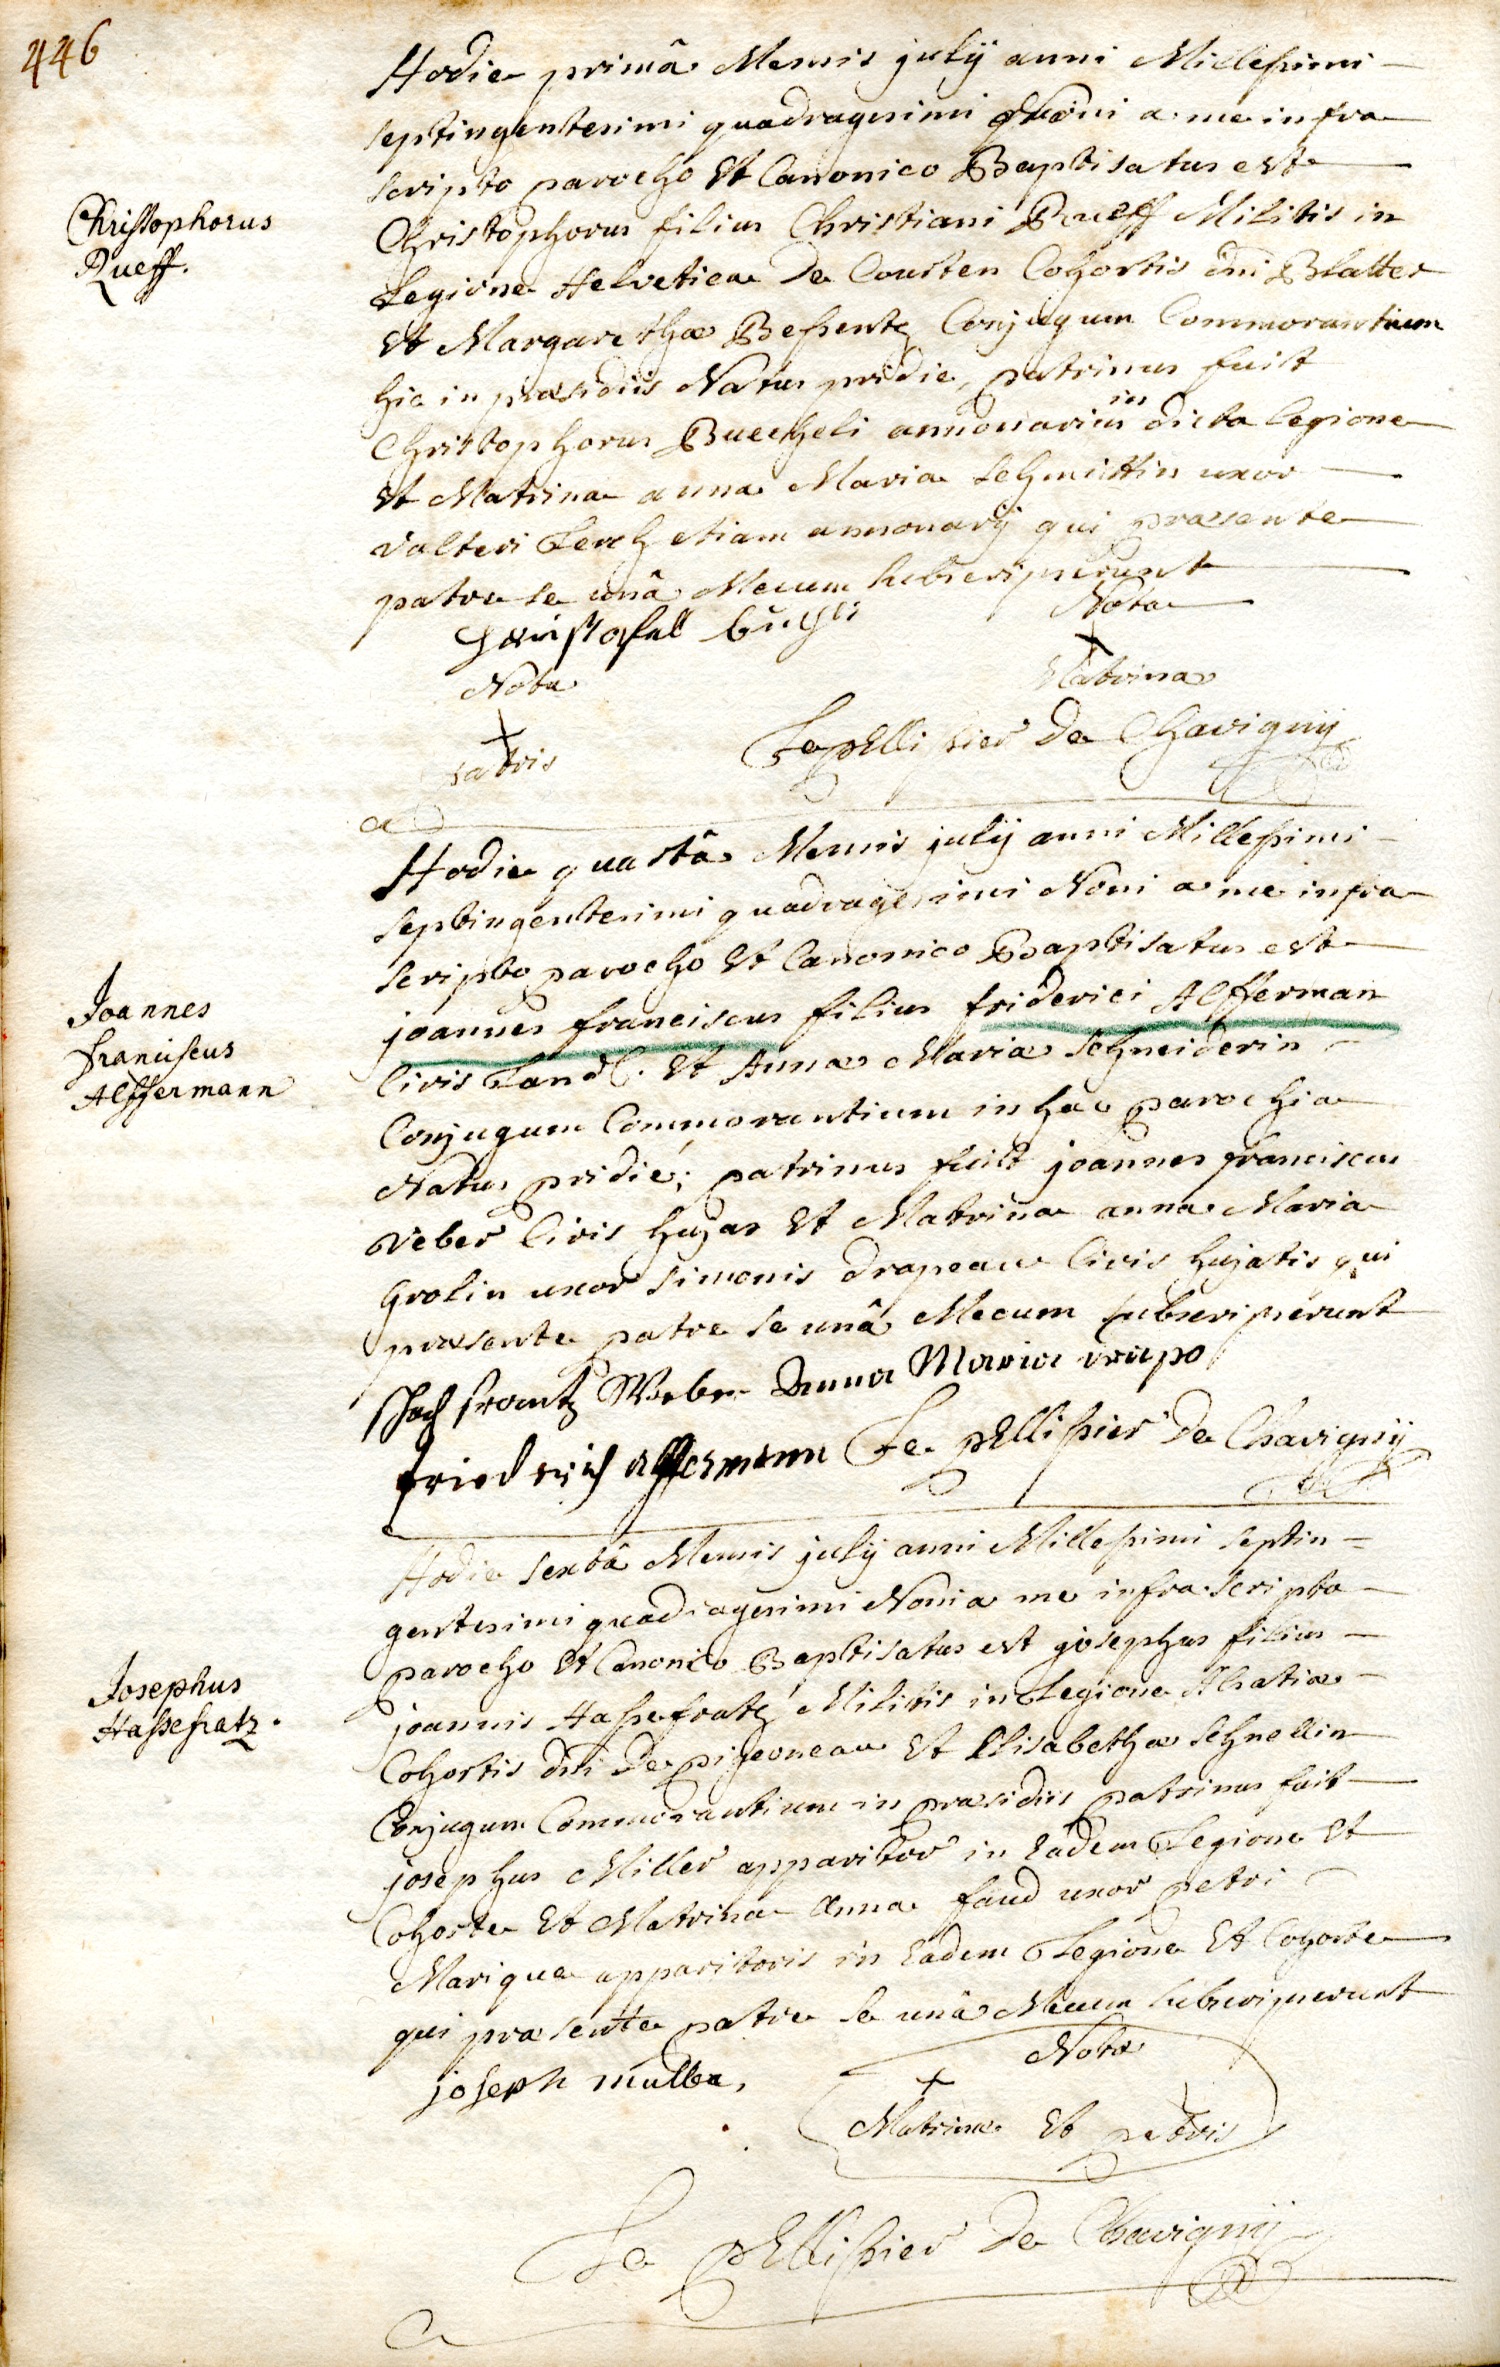 446
Hodie primâ Mensis julij anni Millesimi
septingentesimi quadragesimi Noni a me infra
scripto parocho Et Canonico Baptisatus est
Christophorus filius Christiani Rueff Militis in
Legione Helvetica De Courten Cohortis dni Blatter
Et Margarethæ Bessentz Conjugum Commorantium
hic in præsidiis Natus pridie, patrinus fuit
Christophorus Buecheli annonarius in dicta legione
Et Matrina anna Maria Schmittin uxor
valteri Lerch etiam annonarij qui præsente
patre se unâ Mecum subscripserunt
Christophorus
Rueff.
Christofel büchli
Nota
Matrina
Nota
patris
Le pEllissier De Chavignij
Hodie quartâ Mensis julij anni Millesimi
septingentesimi quadragesimi Noni a me infra
scripto parocho Et Canonico Baptisatus est
joannes franciscus filius friderici Alfferman
Civis Land. Et Annæ Mariæ Schneiderin
Conjugum Commorantium in hac parochia
Natus pridie; patrinus fuit joannes franciscus
veber Civis hujas Et Matrina anna Maria
Grolin uxor Simonis drapeau Civis hujatis qui
præsente patre se unâ Mecum subscripserunt
Joannes
Franciscus
Alffermann
frantz Weber Anna Maria drapo
friedrich alffermann Le pEllissier De Chavignij
Hodie sextâ Mensis julij anni Millesimi septin=
gentesimi quadragesimi Noni a me infra scripto
parocho Et Canonico Baptisatus est josephus filius
joannis Hassefratz Militis in Legione Alsatiæ
Cohortis dni De pigeoneau Et Elisabethæ Schnellin
Conjugum Commorantium in præsidiis patrinus fuit
josephus Miller apparitor in Eadem Legione Et
Cohorte Et Matrina Anna faud uxor petri
Marique apparitoris in Eadem Legione Et Cohorte
qui præsente patre se unâ Mecum subscripserunt
Josephus
Hassefratz.
joseph muller,
Nota
Matrinæ Et patris
Le pEllissier De Chavignij